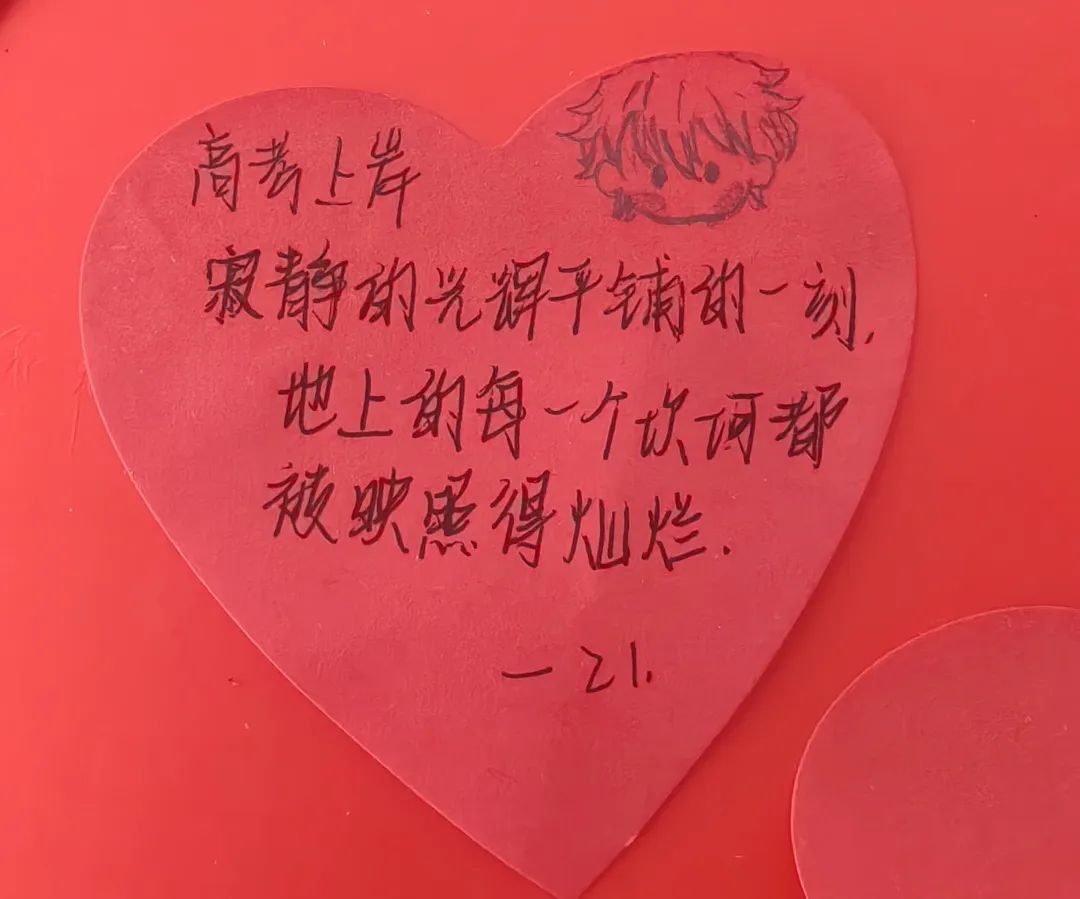 高考上岸
寂静的光辉平铺的一刻,
地上的每一个坎坷都
被映照得灿烂.
一 21.